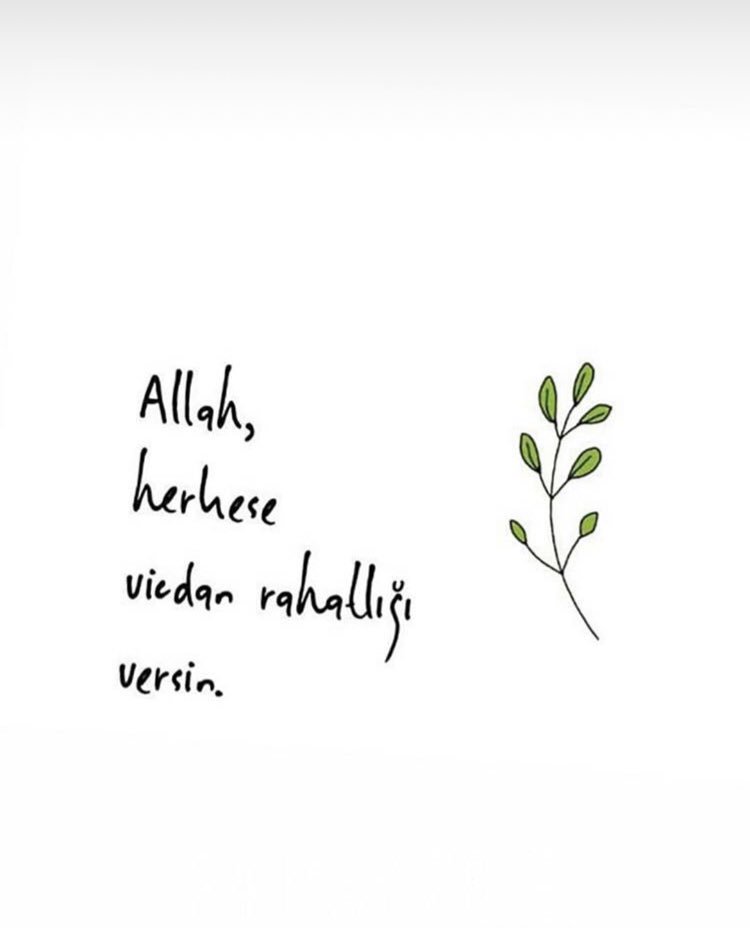 Allah,
herkese
vicdan rahatlığı
versin.